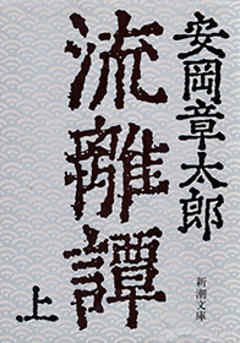 安岡章太郎
流離譚
上
新潮文庫